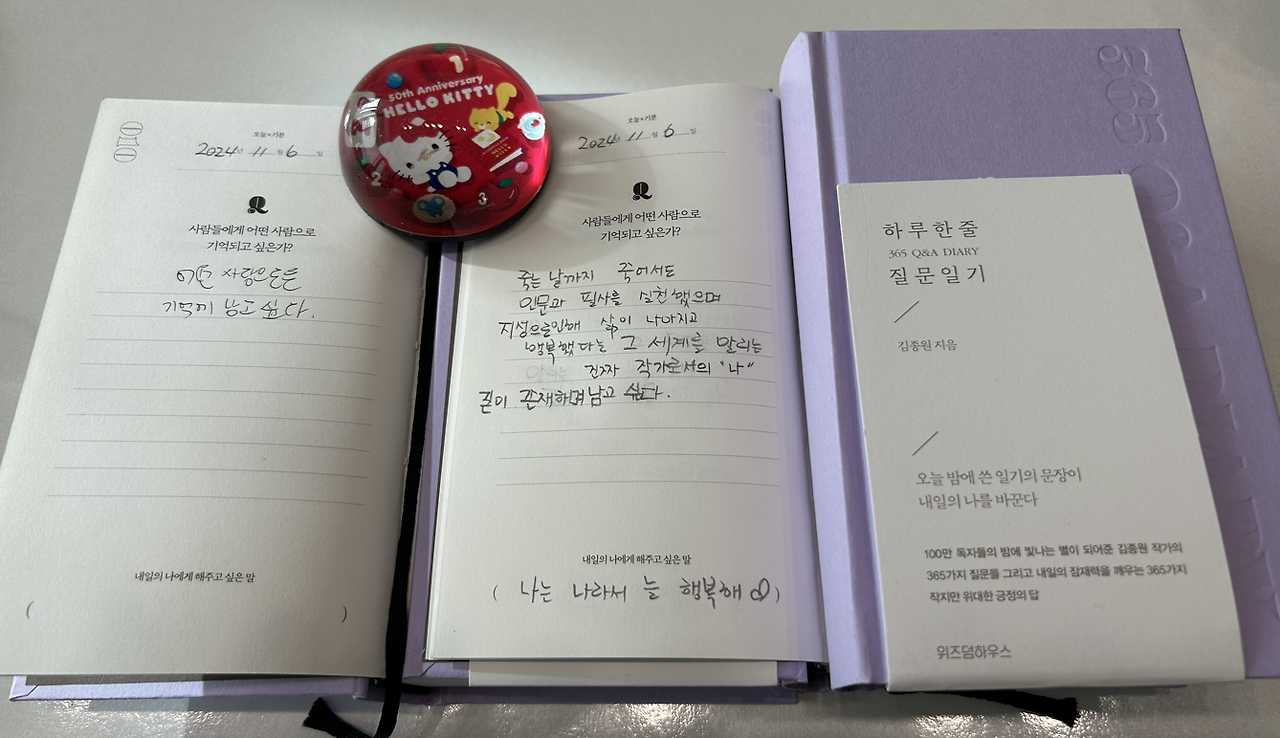 010
오늘 × 기분
2024년 11월 6일
Q
사람들에게 어떤 사람으로
기억되고 싶은가?
사람으로
기억에 남고 싶다.
내일의 나에게 해주고 싶은 말
( )
1
50th Anniversary
HELLO KITTY
2
3
오늘 × 기분
2024년 11월 6일
Q
사람들에게 어떤 사람으로
기억되고 싶은가?
죽는 날까지 죽어서도
인문과 필사를 실천했으며
지성으로인해 삶이 나아지고
행복했다는 그 세계를 알리는
진짜 작가로서의 "나"
존재하며 남고 싶다.
내일의 나에게 해주고 싶은 말
( 나는 나라서 늘 행복해 )
365 Q&A DIARY
하루 한 줄
365 Q&A DIARY
질문 일기
김종원 지음
오늘 밤에 쓴 일기의 문장이
내일의 나를 바꾼다
100만 독자들의 밤에 빛나는 별이 되어준 김종원 작가의
365가지 질문들 그리고 내일의 잠재력을 깨우는 365가지
작지만 위대한 긍정의 답
위즈덤하우스